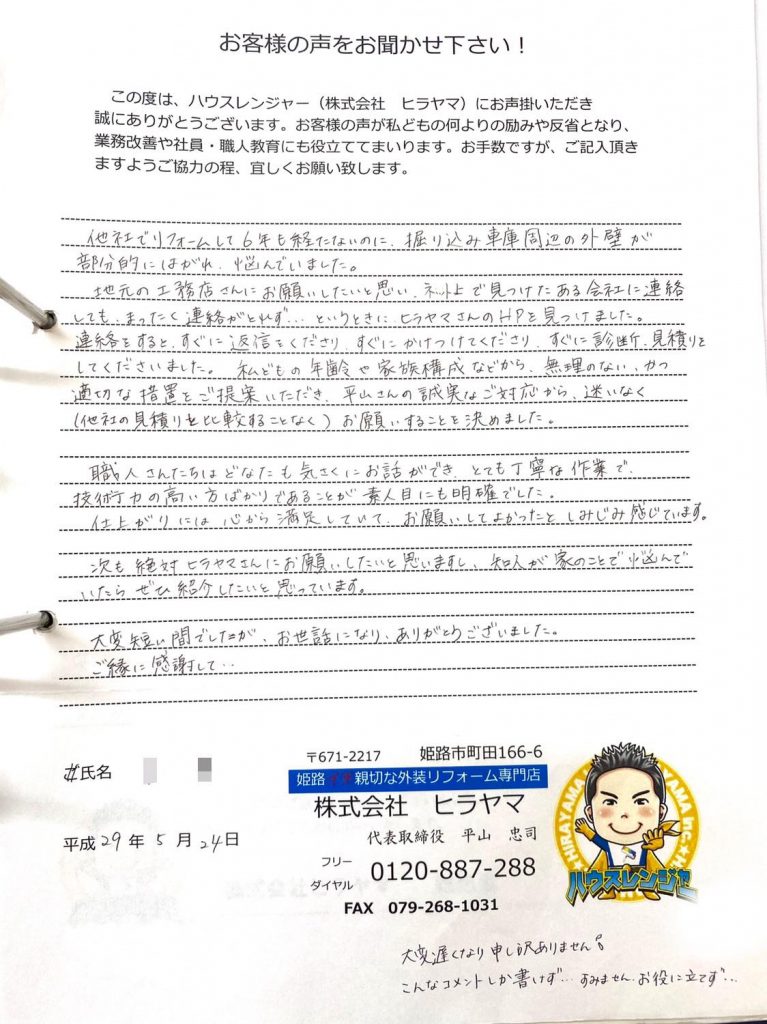 お客様の声をお聞かせ下さい！
この度は、ハウスレンジャー（株式会社　ヒラヤマ）にお声掛いただき
誠にありがとうございます。お客様の声が私どもの何よりの励みや反省となり、
業務改善や社員・職人教育にも役立ててまいります。お手数ですが、ご記入頂き
ますようご協力の程、宜しくお願い致します。
他社でリフォームして6年も経たないのに、掘り込み車庫周辺の外壁が
部分的にはがれ、悩んでいました。
地元の工務店さんにお願いしたいと思い、ネット上で見つけたある会社に連絡
しても、まったく連絡がとれず…というときに、ヒラヤマさんのHPを見つけました。
連絡をすると、すぐに返信をくださり、すぐにかけつけてくださり、すぐに診断、見積りを
してくださいました。私どもの年齢や家族構成などから、無理のない、かつ
適切な措置をご提案いただき、平山さんの誠実なご対応から、迷いなく
(他社の見積りを比較することなく)お願いすることを決めました。
職人さんたちはどなたも気さくにお話ができ、とても丁寧な作業で、
技術力の高い方ばかりであることが素人目にも明確でした。
仕上がりには心から満足していて、お願いしてよかったと、しみじみ感じています。
次も絶対ヒラヤマさんにお願いしたいと思いますし、知人が家のことで悩んで
いたらぜひ紹介したいと思っています。
大変短い間でしたが、お世話になり、ありがとうございました。
ご縁に感謝して…
〒671-2217　姫路市町田166-6
姫路イチ親切な外装リフォーム専門店
お氏名
株式会社　ヒラヤマ
代表取締役　平山　忠司
平成29年5月24日
フリー
ダイヤル
0120-887-288
FAX 079-268-1031
HIRAYAMA
ハウスレンジャー
大変遅くなり申し訳ありません。
こんなコメントしか書けず…すみません。お役に立てず…